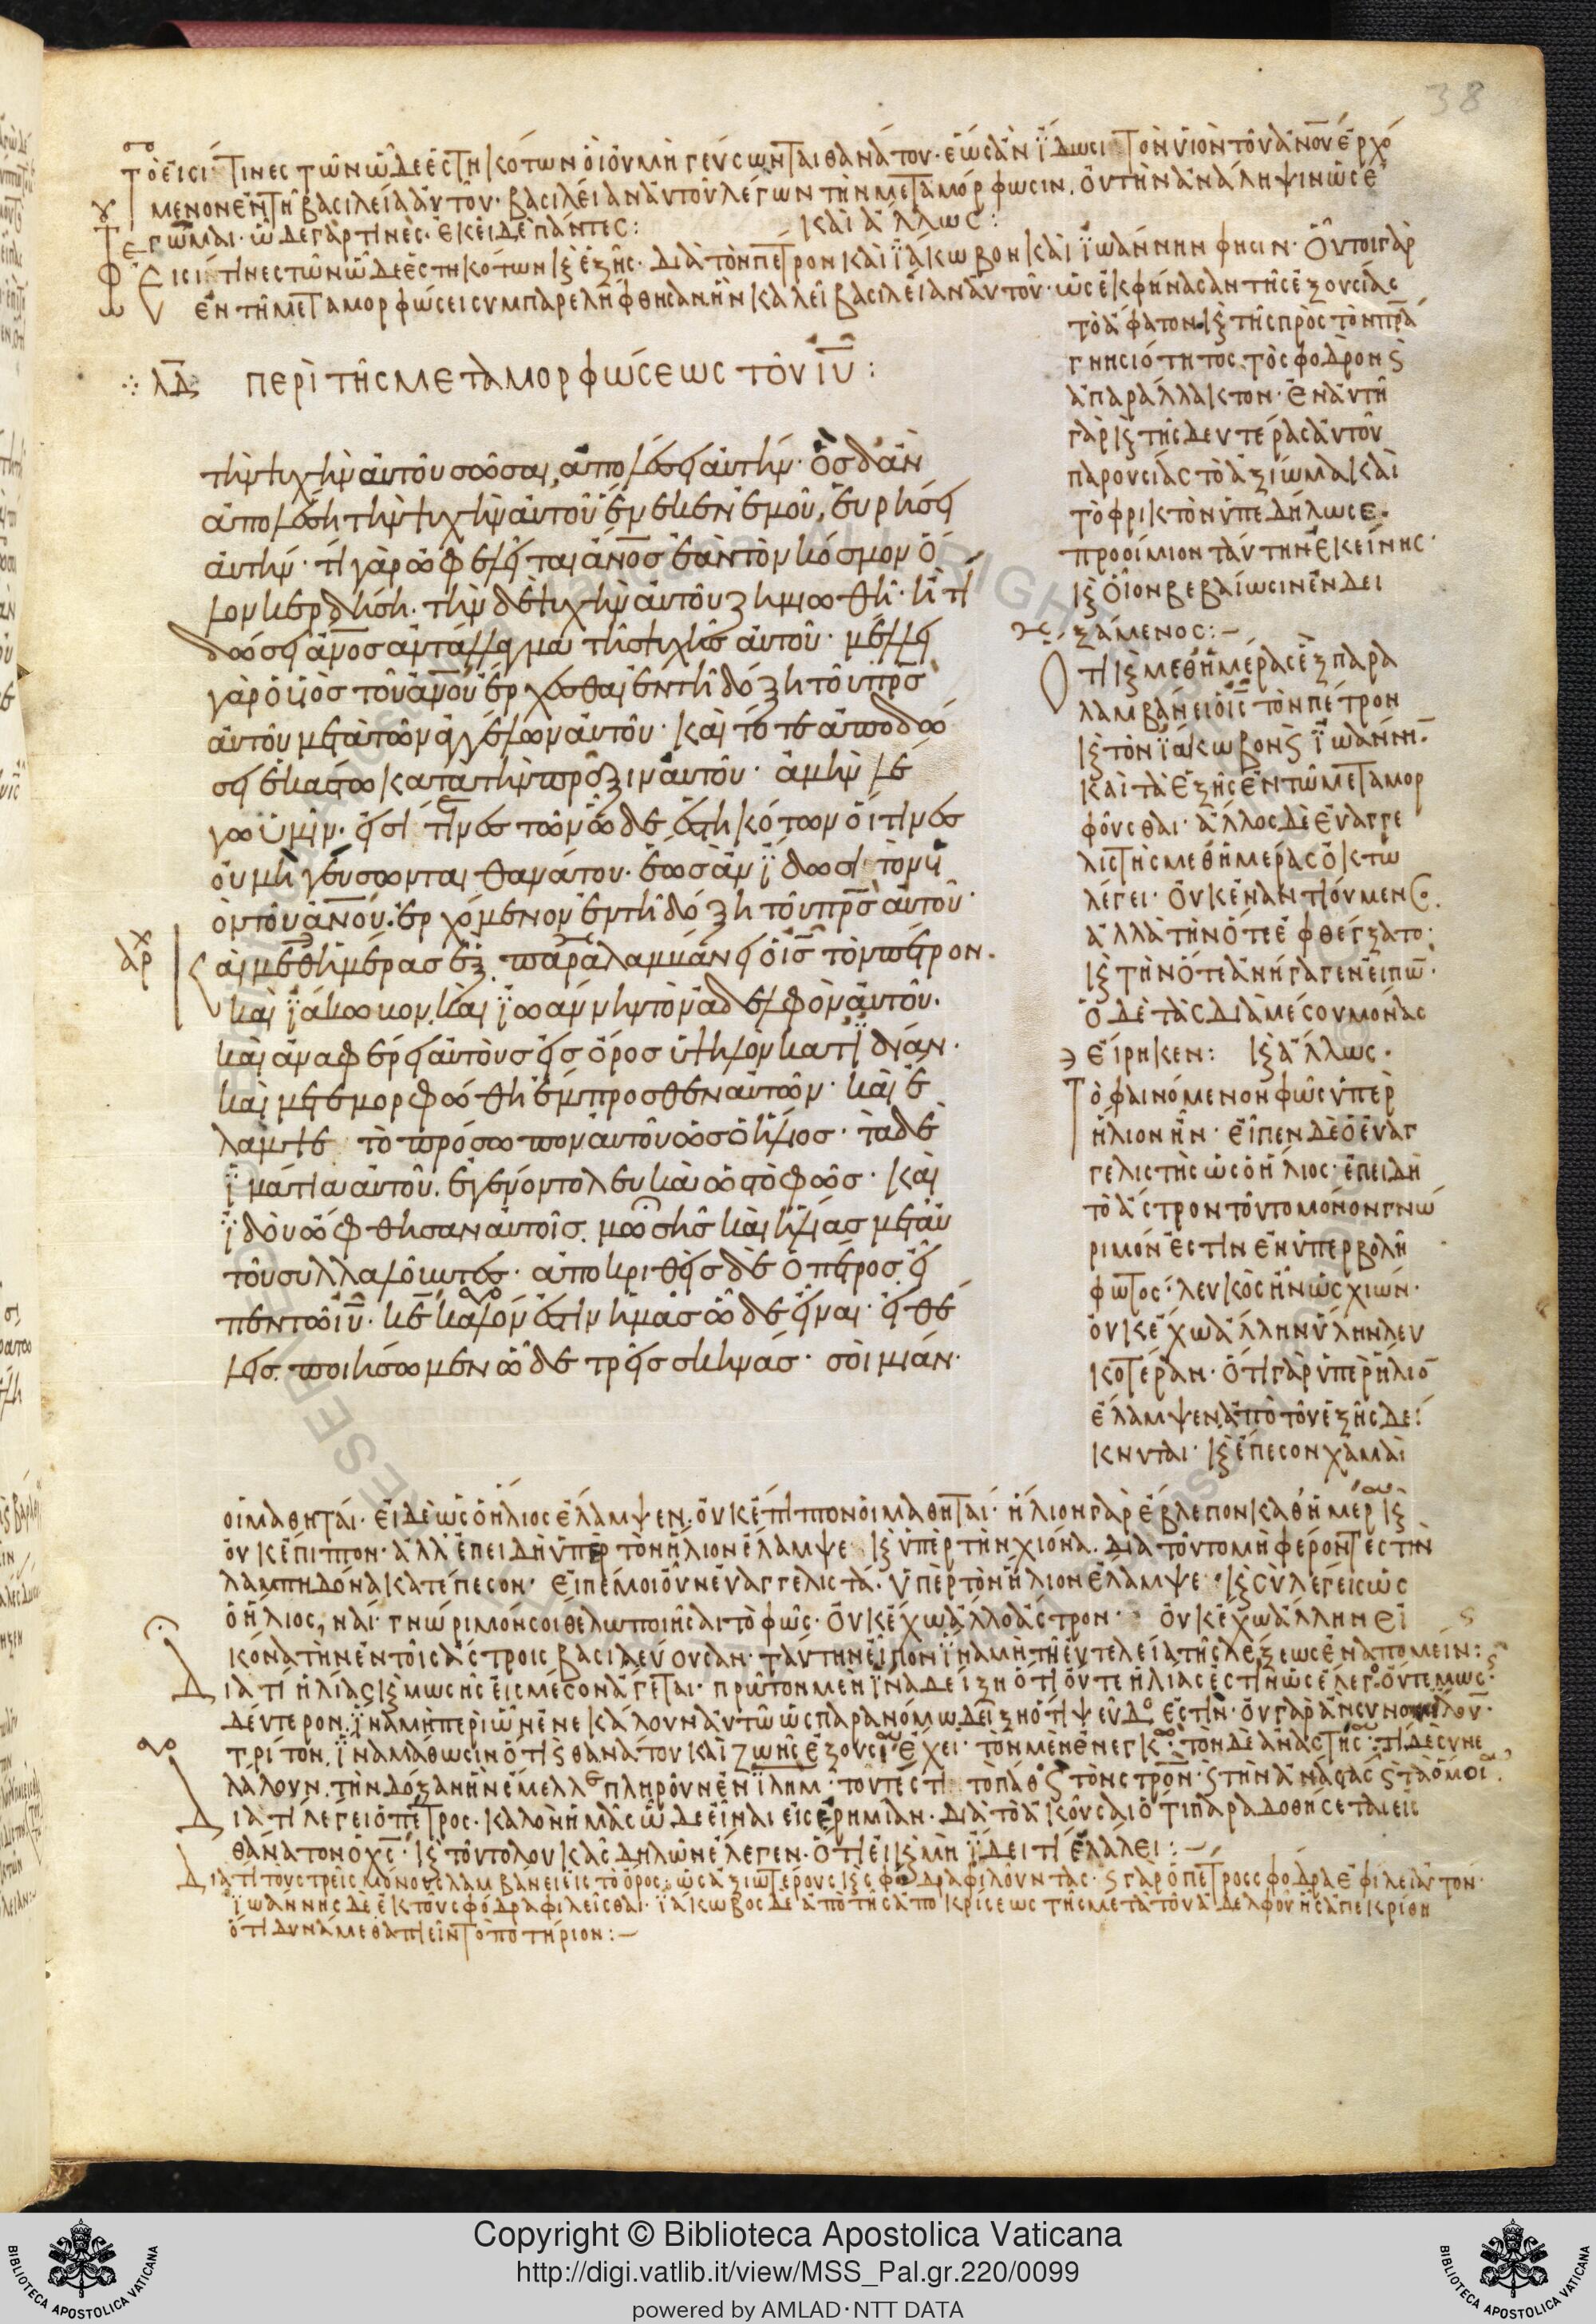 38
Τὸ εἰσί τινες τῶν ὧδε ἑστηκότων οἳ οὐ μὴ γεύσωνται θανάτου· ἕως ἂν ἴδωσι τὸν υἱὸν τοῦ ἀνου ἐρχό
μενον ἐν τῆ βασιλεία αὐτοῦ· βασιλείαν αὐτοῦ λέγων τὴν μεταμόρφωσιν. οὐ τὴν ἀνάληψιν ὡς ἐ
γῶμαι· ὧδε γάρ τινὲς· ἐκεῖ δὲ πάντες:
καὶ ἄλλως:
Εἰσί τινες τῶν ὧδε ἑστηκότων κ ἑξῆς· διὰ τὸν πέτρον καὶ ἰάκωβον καὶ ἰωάννην φησιν· οὗτοι γὰρ
ἐν τῆ μεταμορφώσει συμπαρελήφθησαν ἣν καλεῖ βασιλείαν αὐτοῦ· ὡς ἐκφήνασαν τῆς ἐξουσίας
τὸ ἄφατον κ τῆς πρὸς τὸν πρα
γνησιότητος τὸ σφοδρὸν κ
ἀπαράλλακτον· ἐν αὐτῆ
γὰρ κ τῆς δευτέρας αὐτοῦ
παρουσίας τὸ ἀξίωμα καὶ
τὸ φρικτὸν ὑπεδήλωσε.
προοίμιον ταύτην ἐκείνης·
κ οἷον βεβαίωσιν ἐνδει
ξάμενος:–
Ὅτι κ μεθ ἡμέρας ἓξ παρα
λαμβάνει ὁ ις τὸν πέτρον
κ τὸν ἰάκωβον κ ἰωάννη·
καὶ τὰ ἑξῆς ἐν τῶ μεταμορ
φοῦσθαι· ἄλλος δὲ εὐαγγε
λιστὴς μεθ ἡμέρας ὀκτὼ
λέγει· οὐκ ἐναντιούμενος.
ἀλλὰ τὴν ὅτε ἐφθέγξατο·
κ τὴν ὅτε ἀνήγαγεν εἰπω·
ὁ δὲ τὰς διὰ μέσου μόνας
εἴρηκεν: κ ἄλλως·
Τὸ φαινόμενον φῶς ὑπὲρ
ἥλιον ἦν· εἶπεν δὲ ὁ εὐαγ
γελιστὴς ὡς ὁ ἥλιος· ἐπειδὴ
τὸ ἄστρον τοῦτο μόνον γνώ
ριμόν ἐστιν ἐν ὑπερβολῆ
φωτος· λευκὸς ἦν ὡς χιών·
οὐκ ἔχω ἄλλην ὕλην λευ
κοτέραν· ὅτι γὰρ ὑπὲρ ἥλιο
ἔλαμψεν ἀπὸ τοῦ ἑξῆς δεί
κνυται· κ ἔπεσον χαμαὶ
∴ λΔ περὶ τῆς μεταμορφώσεως τοῦ ιυ:
τὴν ψυχὴν αὐτοῦ σῶσαι, ἀπολέσει αὐτήν· ὃς δ ἂν
ἀπολέση τὴν ψυχὴν αὐτοῦ ἕνεκεν ἐμοῦ, εὑρήσει
αὐτήν· τί γὰρ ὠφελεῖται ἄνος ἐὰν τὸν κόσμον ὅ
λον κερδήση· τὴν δὲ ψυχὴν αὐτοῦ ζημιωθῆ· ἢ τί
δώσει ἄνος ἀντάλλαγμα τῆς ψυχῆς αὐτοῦ· μέλλει
γὰρ ὁ υἱὸς τοῦ ἀνου ἔρχεσθαι ἐν τῆ δόξη τοῦ πρς
αὐτοῦ μετὰ τῶν ἀγγέλων αὐτοῦ· καὶ τότε ἀποδώ
σει ἑκάστω κατὰ τὴν πρᾶξιν αὐτοῦ· ἀμὴν λέ
γω ὑμῖν· εἰσί τινες τῶν ὧδε ἑστηκότων οἵτινες
οὐ μὴ γεύσωνται θανάτου· ἕως ἂν ἴδωσι τὸν υἱ
ὸν τοῦ ἀνου. ἐρχόμενον ἐν τῆ δόξη τοῦ πρς αὐτοῦ·
Και μεθ ἡμέρας ἓξ παραλαμβάνει ὁ ις τὸν πέτρον.
καὶ ἰάκωβον. καὶ ἰωάννην τὸν ἀδελφὸν αὐτοῦ.
καὶ ἀναφέρει αὐτοὺς εἰς ὄρος ὑψηλὸν κατ ἰδίαν·
καὶ μετεμορφώθη ἔμπροσθεν αὐτῶν· καὶ ἔ
λαμψε τὸ πρόσωπον αὐτοῦ ὡς ὁ ἥλιος· τὰ δὲ
ἱμάτια αὐτοῦ. ἐγένοντο λευκὰ ὡς τὸ φῶς· καὶ
ἰδοὺ ὤφθησαν αὐτοῖς. μωσῆς καὶ ἠλίας μετ αὐ
τοῦ συλλαλοῦντες· ἀποκριθεὶς δὲ ὁ πέτρος εἶ
πεν τῶ ιυ· κε καλόν ἐστιν ἡμᾶς ὧδε εἶναι· εἰ θέ
λεις. ποιήσωμεν ὧδε τρεῖς σκηνάς· σοὶ μίαν·
οἱ μαθηταί· εἰ δὲ ὡς ὁ ἥλιος ἔλαμψεν. οὐκ ἔπιπτον οἱ μαθηταί· ἥλιον γὰρ ἔβλεπον καθ ἡμέρ κ
οὐκ ἔπιπτον· ἀλλ ἐπειδὴ ὑπὲρ τὸν ἥλιον ἔλαμψε κ ὑπὲρ τὴν χιόνα. διὰ τοῦτο μὴ φέροντες τὴν
λαμπηδόνα κατέπεσον· εἰπέ μοι οὖν εὐαγγελιστά· ὑπὲρ τὸν ἥλιον ἔλαμψε· κ σὺ λέγεις ὡς
ὁ ἥλιος, ναί· γνώριμόν σοι θέλω ποιῆσαι τὸ φῶς· οὐκ ἔχω ἄλλο ἄστρον· οὐκ ἔχω ἄλλην εἰ
κόνα τὴν ἐν τοῖς ἄστροις βασιλεύουσαν· ταύτην εἶπον ἵνα μὴ τῆ εὐτελεία τῆς λέξεως ἐναπομείν:
Διατί ἠλίας κ μωσῆς εἰς μέσον ἄγεται· πρῶτον μὲν ἵνα δείξη ὅτι οὔτε ἠλίας ἐστὶν ὡς ἔλεγον οὔτε μωσ·
δεύτερον. ἵνα μὴ περὶ ὧν ἐνεκάλουν αὐτῶ ὡς παρανόμω δείξη ὅτι ψεῦδο ἐστίν· οὐ γὰρ ἂν
τρίτον. ἵνα μάθωσιν ὅτι κ θανάτου καὶ ζωῆς ἐξουσι ἔχει· τὸν μὲν ἐνεγκ· τὸν δὲ ἀναστης· τί δὲ συνε
λάλουν. τὴν δόξαν ἣν ἔμελλε πληροῦν ἐν ἰλημ· τουτέστι τὸ πάθ κ τὸν στρον· κ τὴν ἀνάστασ κ τὰ ὅμοι.
Διατί λέγει ὁ πέτρος· καλὸν ἡμᾶς ὧδε εἶναι εἰς ἐρημίαν· διὰ τὸ ἀκοῦσαι ὅτι παραδοθήσεται εἰς
θάνατον ὁ χς· κ τοῦτο λουκᾶς δηλῶν ἔλεγεν· ὅτι εἰ κ μὴ ἤδει τί ἐλάλει:–
Διατί τοὺς τρεῖς μόνους λαμβάνει εἰς τὸ ὄρος. ὡς ἀξιωτέρους κ σφόδρα φιλοῦντας· κ γὰρ ὁ πέτρος σφόδρα ἐφίλει αὐτόν·
ἰωάννης δὲ ἐκ τοῦ σφόδρα φιλεῖσθαι· ἰάκωβος δὲ ἀπὸ τῆς ἀποκρίσεως τῆς μετὰ τοῦ ἀδελφοῦ ἧς ἀπεκρίθη
ὅτι δυνάμεθα πιεῖν τὸ ποτήριον:–
Copyright © Biblioteca Apostolica Vaticana
http://digi.vatlib.it/view/MSS_Pal.gr.220/0099
powered by AMLAD·NTT DATA
BIBLIOTECA APOSTOLICA VATICANA
BIBLIOTECA APOSTOLICA VATICANA